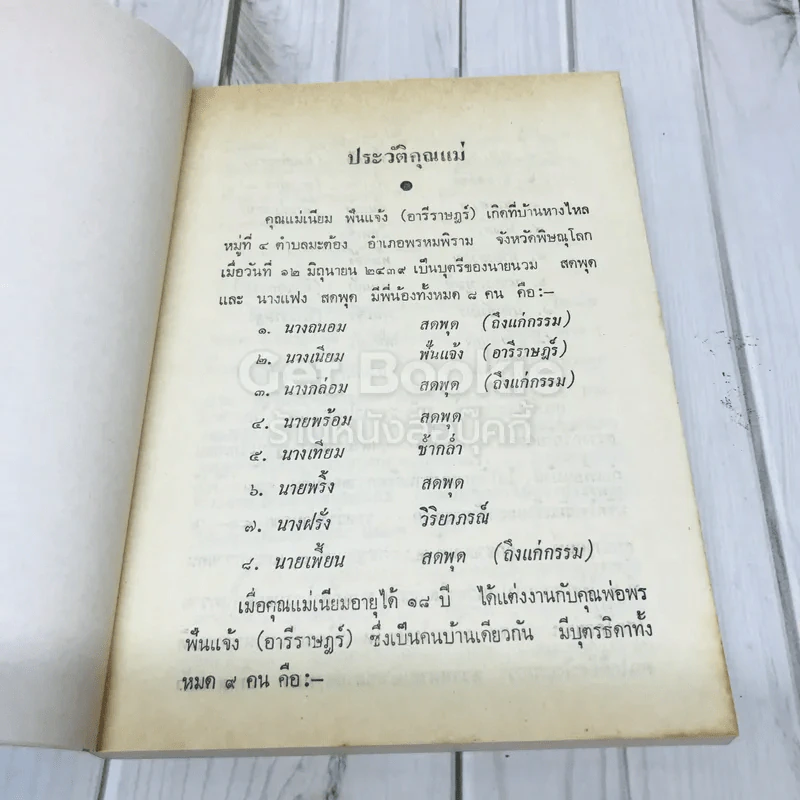 ประวัติคุณแม่
คุณแม่เนียม พึ่นแจ้ง (อารีราษฎร์) เกิดที่บ้านหางไหล
หมู่ที่ ๔ ตำบลมะต้อง อำเภอพรหมพิราม จังหวัดพิษณุโลก
เมื่อวันที่ ๑๒ มิถุนายน ๒๔๓๙ เป็นบุตรีของนายนวม สดพุด
และ นางแฟง สดพุด มีพี่น้องทั้งหมด ๘ คน คือ:—
๑. นางถนอม สดพุด (ถึงแก่กรรม)
๒. นางเนียม ฟั่นแจ้ง (อารีราษฎร์)
Get Bookie
๓. นางกล่อม สดพุด (ถึงแก่กรรม)
๔. นายพร้อม สดพุด
ร้านหนังสือบุ๊คกี้
๕. นางเทียม ช้ำกล่ำ
๖. นายพริ้ง สดพุด
๗. นางฝรั่ง วิริยาภรณ์
๘. นายเพี้ยน สดพุด (ถึงแก่กรรม)
เมื่อคุณแม่เนียมอายุได้ ๑๘ ปี ได้แต่งงานกับคุณพ่อพร
พึ่นแจ้ง (อารีราษฎร์) ซึ่งเป็นคนบ้านเดียวกัน มีบุตรธิดาทั้ง
หมด ๙ คน คือ:—